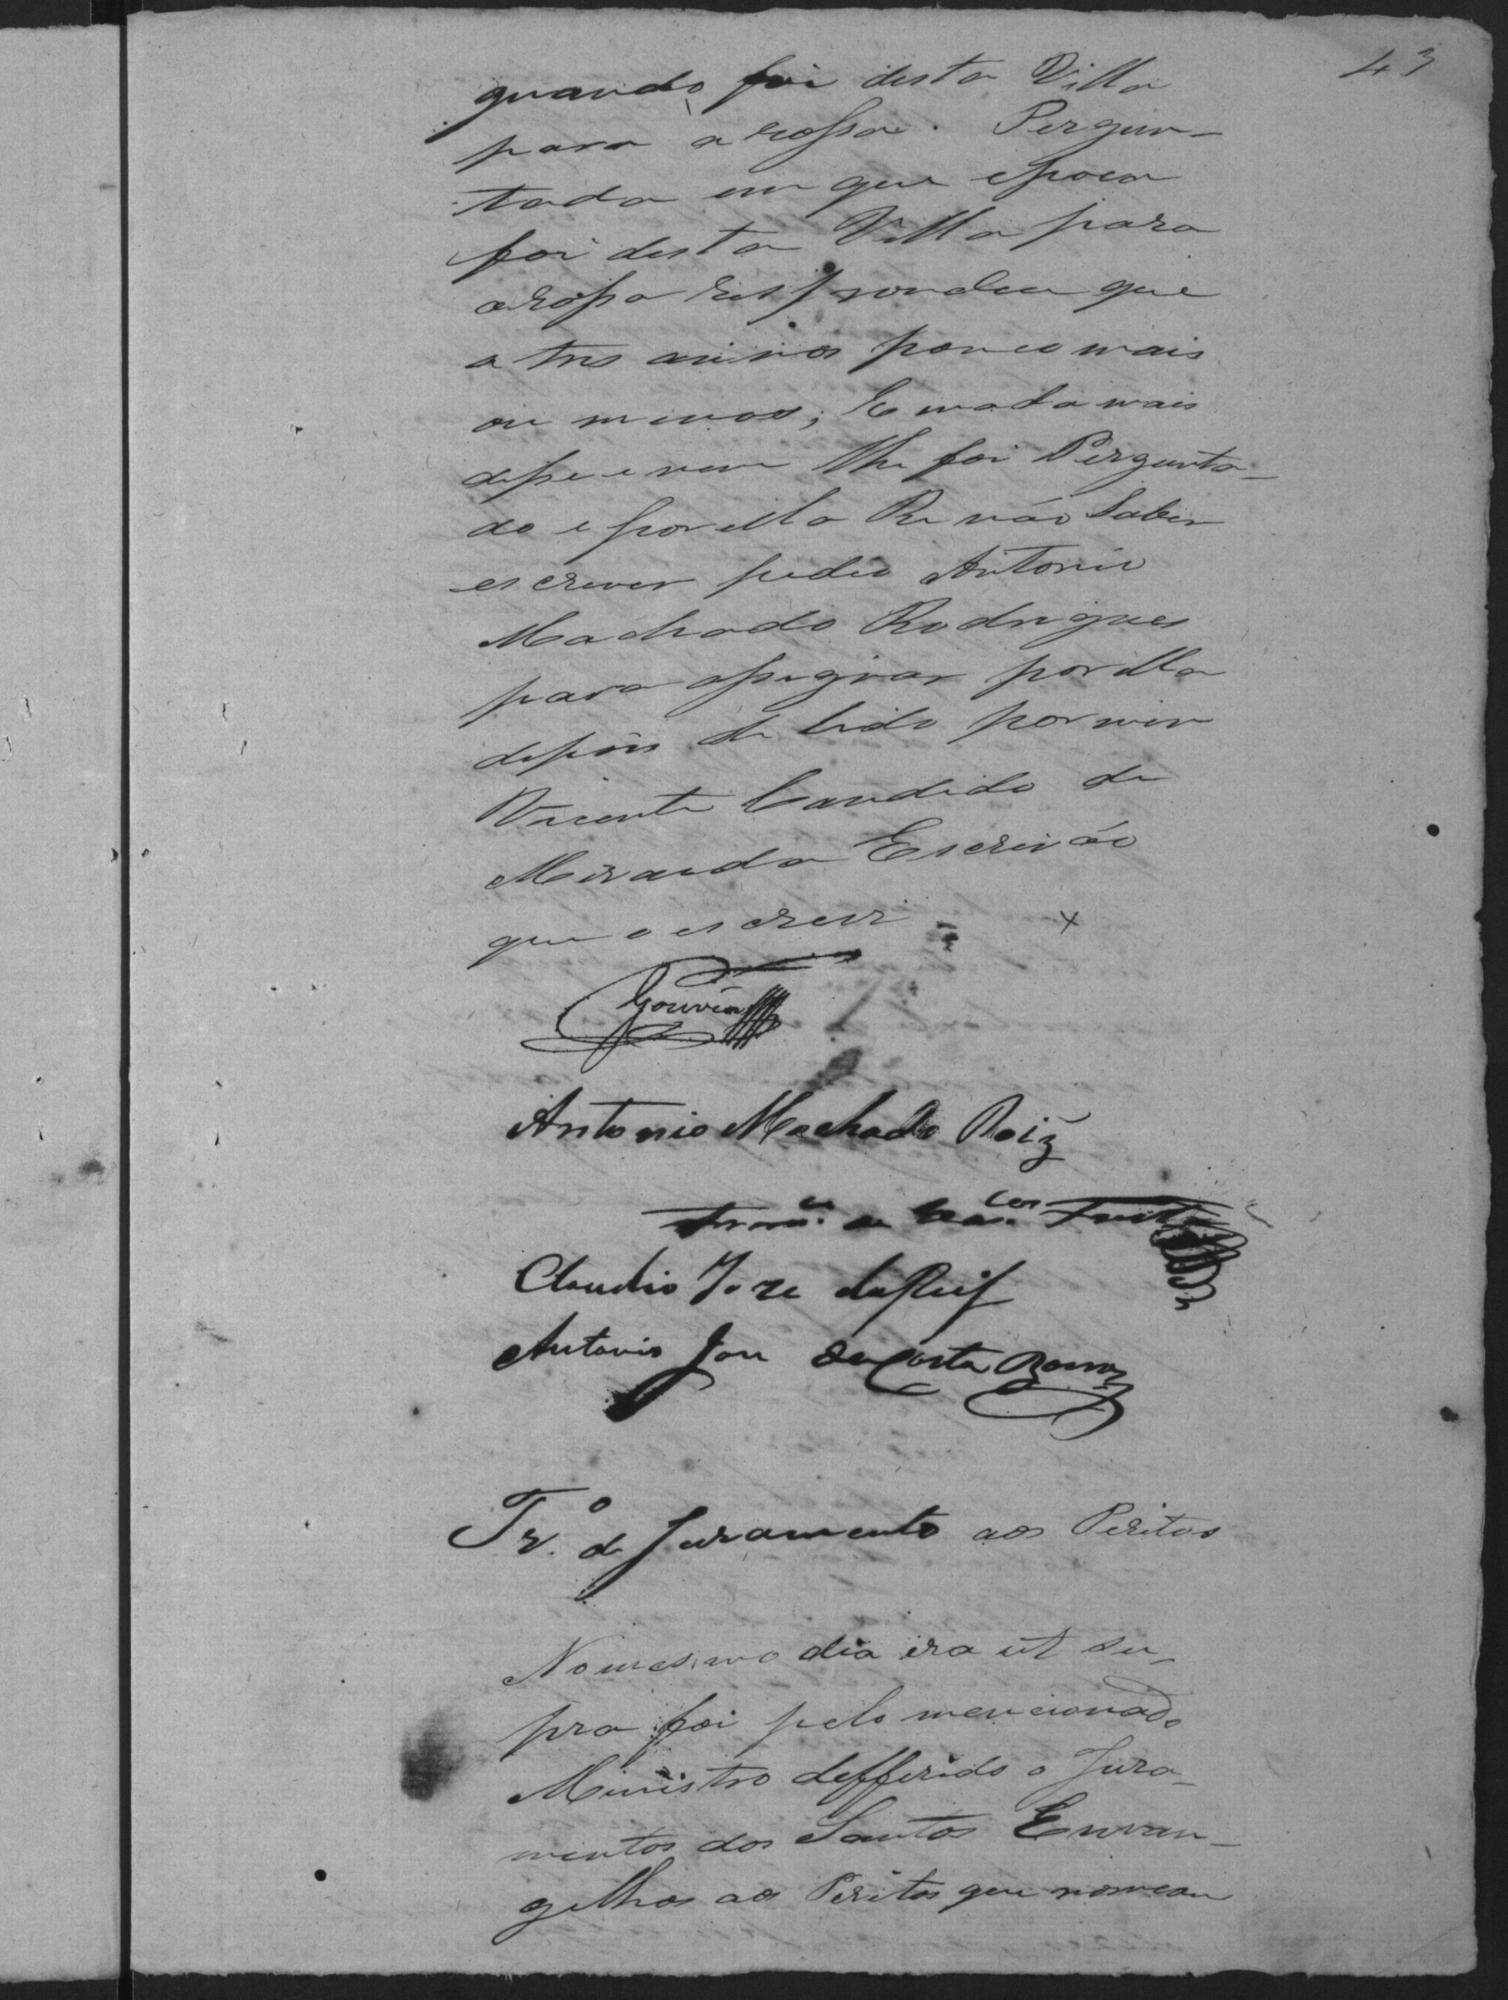 43
quando foi desta Villa
para a rossa. Pergun-
tada em que epoca
foi desta Villa para
a rossa respondeu que
a tres annos pouco mais
ou menos; E nada mais
disse e nem lhe foi Pergunta-
do e por ella Re não Saber
escrever pedio Antonio
Machado Rodrigues
para assignar por ella
depois de lido por mim
Vicente Candido de
Miranda Escrivão
que o escrevi
Gouvêa
Antonio Machado Roiz
Claudio Joze dos Reis
Antonio Joze da Costa
Tr.º de Juramento aos Peritos
No mesmo dia era ut su-
pra foi pelo mencionado
Ministro defferido o Jura-
mentos dos Santos Envan-
gelhos aos Peritos que nomeou